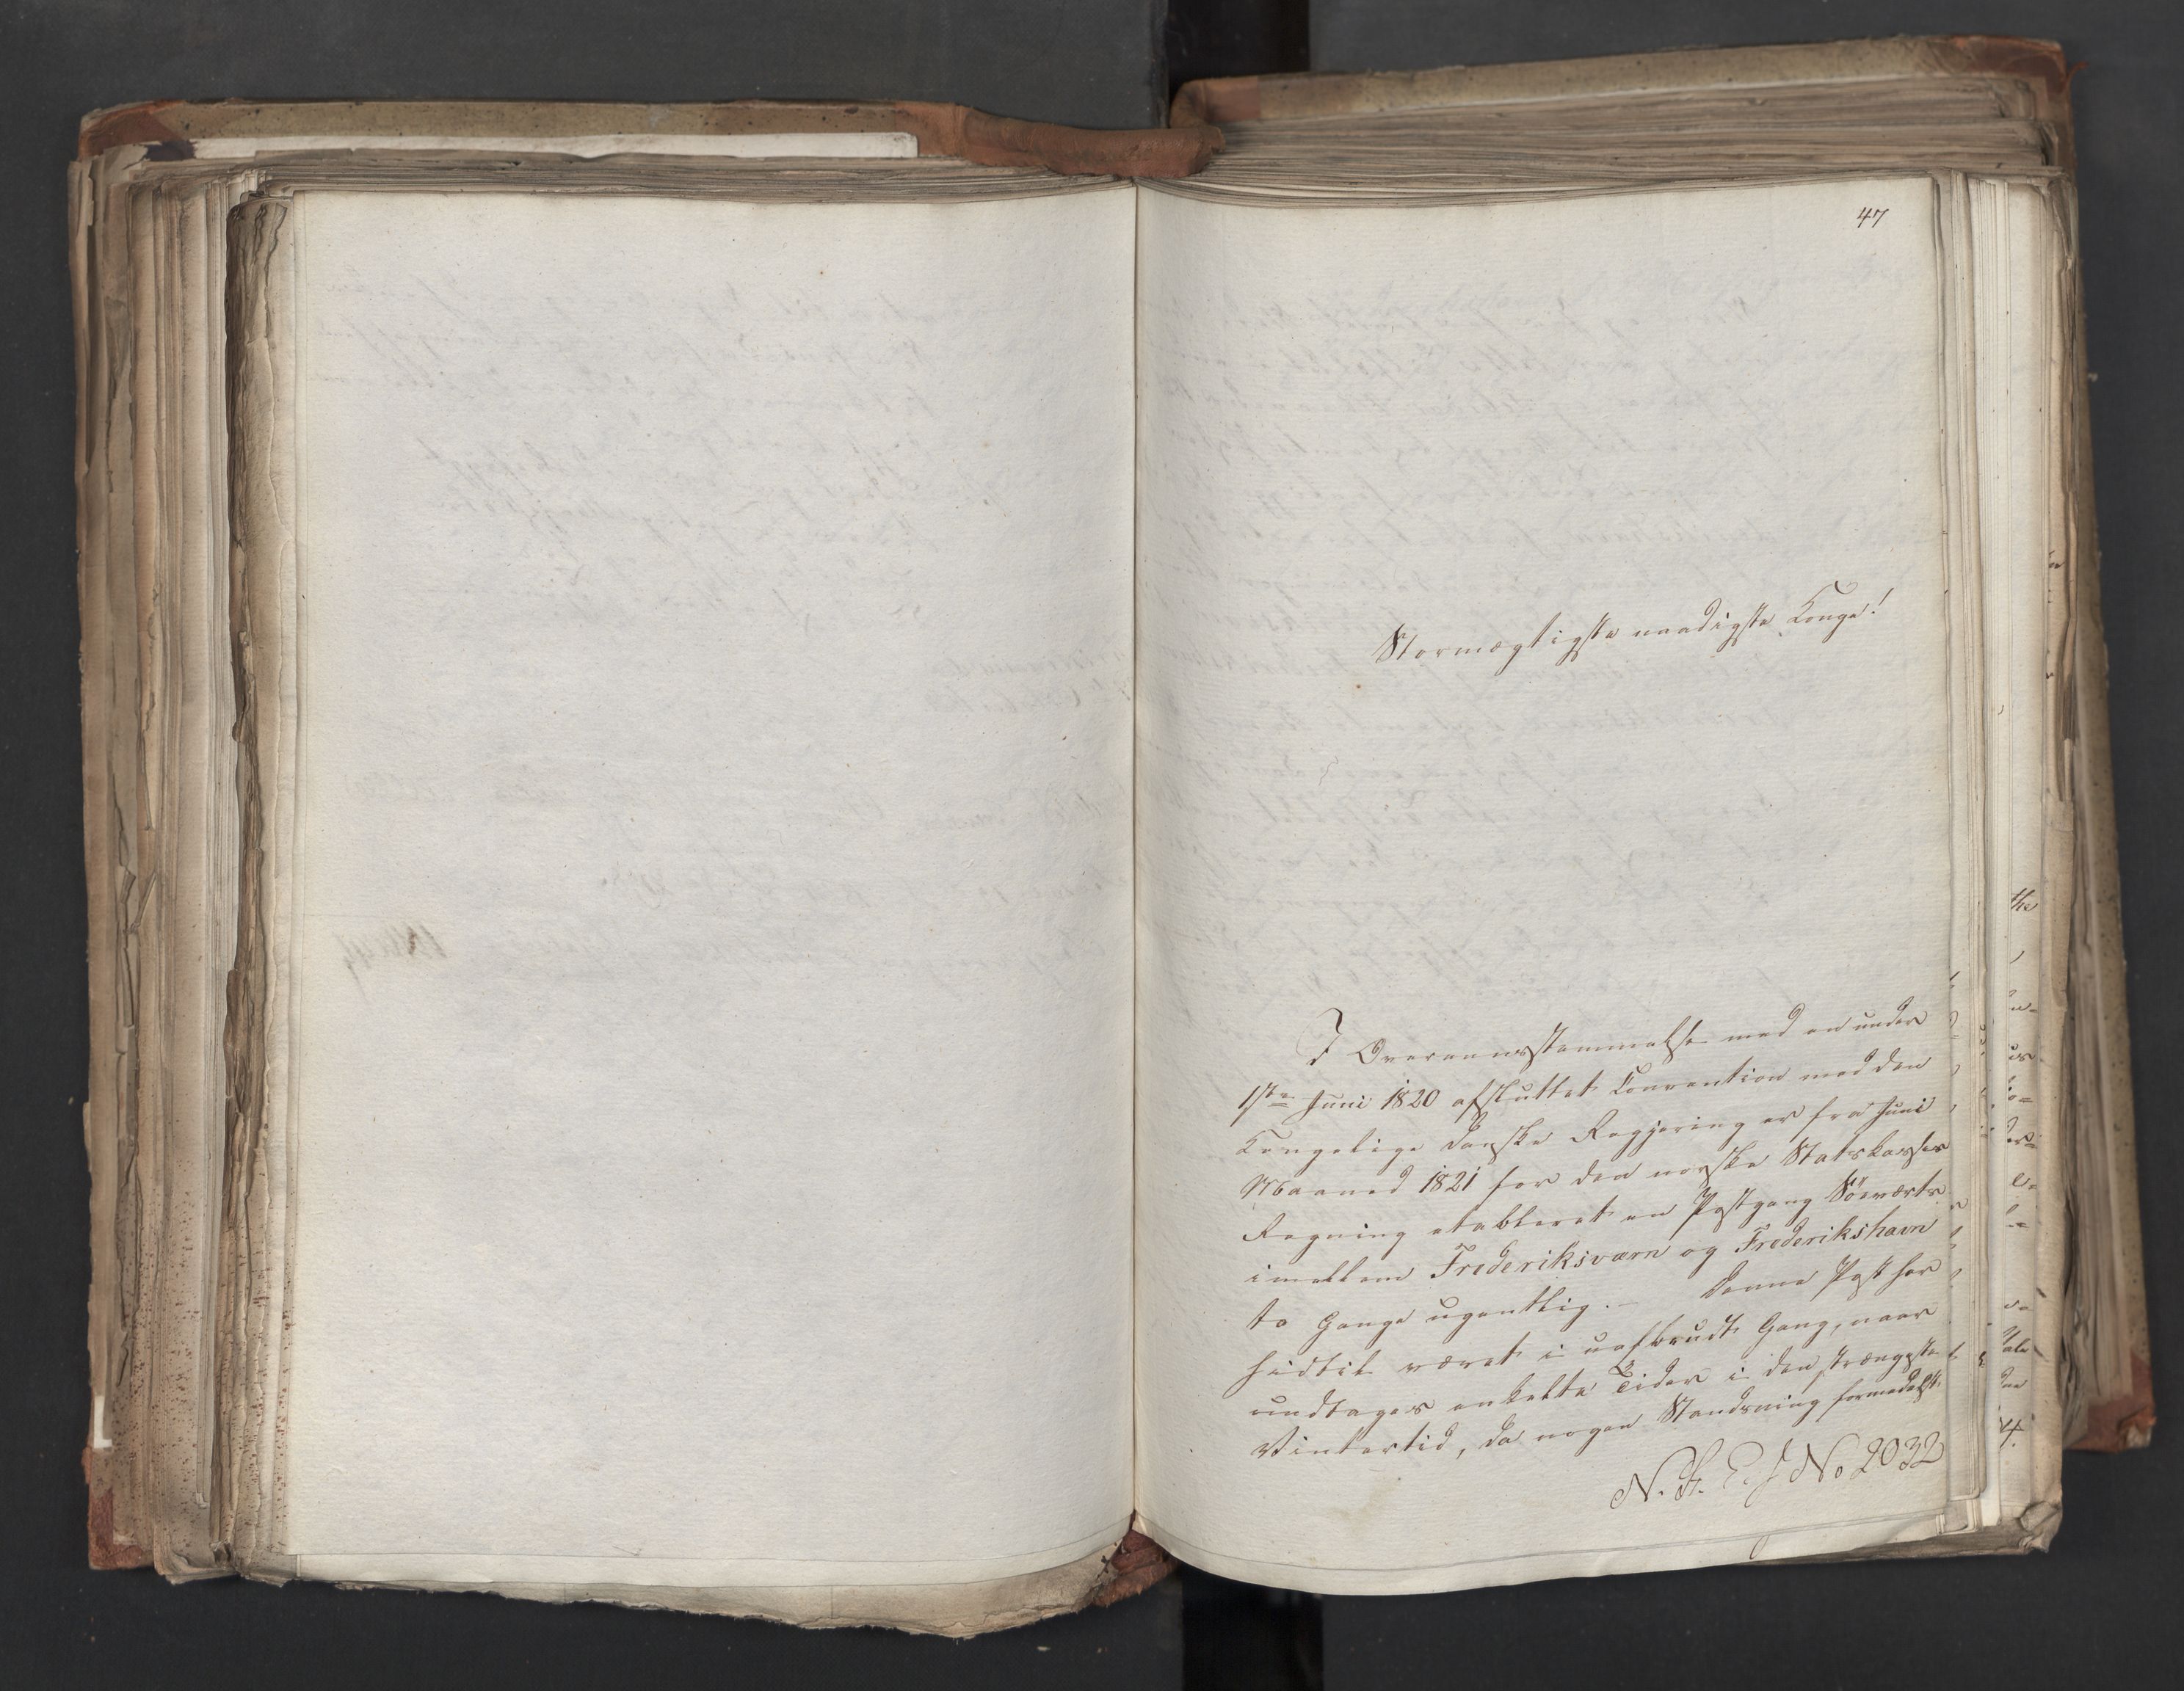 47
Stormægtigste naadigste Konge!
I Overeensstemmelse med en under
1ste Juni 1820 afsluttet Convention med den
Kongelige danske Regjering er fra Juni
Maaned 1821 for den norske Statskasses
Regning etableret en Postgang Söeværts
imellem Frederiksværn og Frederikshavn
to Gange ugentlig. – Denne Post har
hidtil været i uafbrudt Gang, naar
undtages enkelte Tider i den strængeste
Vintertid, da nogen Standsning formedelst
No 2032